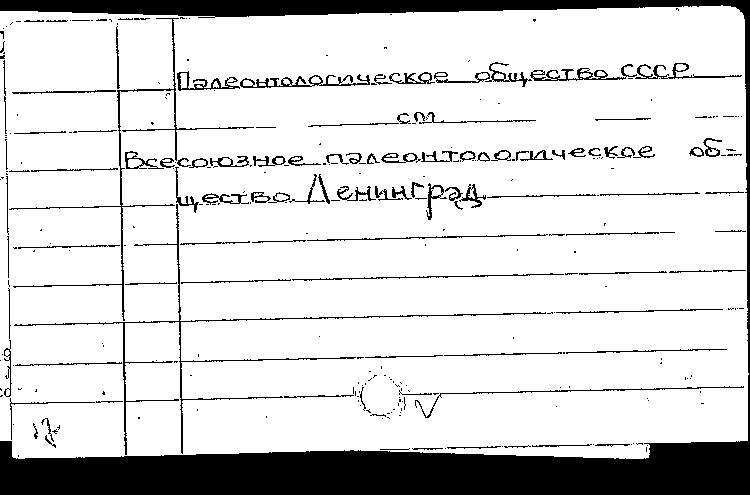 Палеонтологическое общество СССР
см.
Всесоюзное палеонтологическое об-
щество. Ленинград.